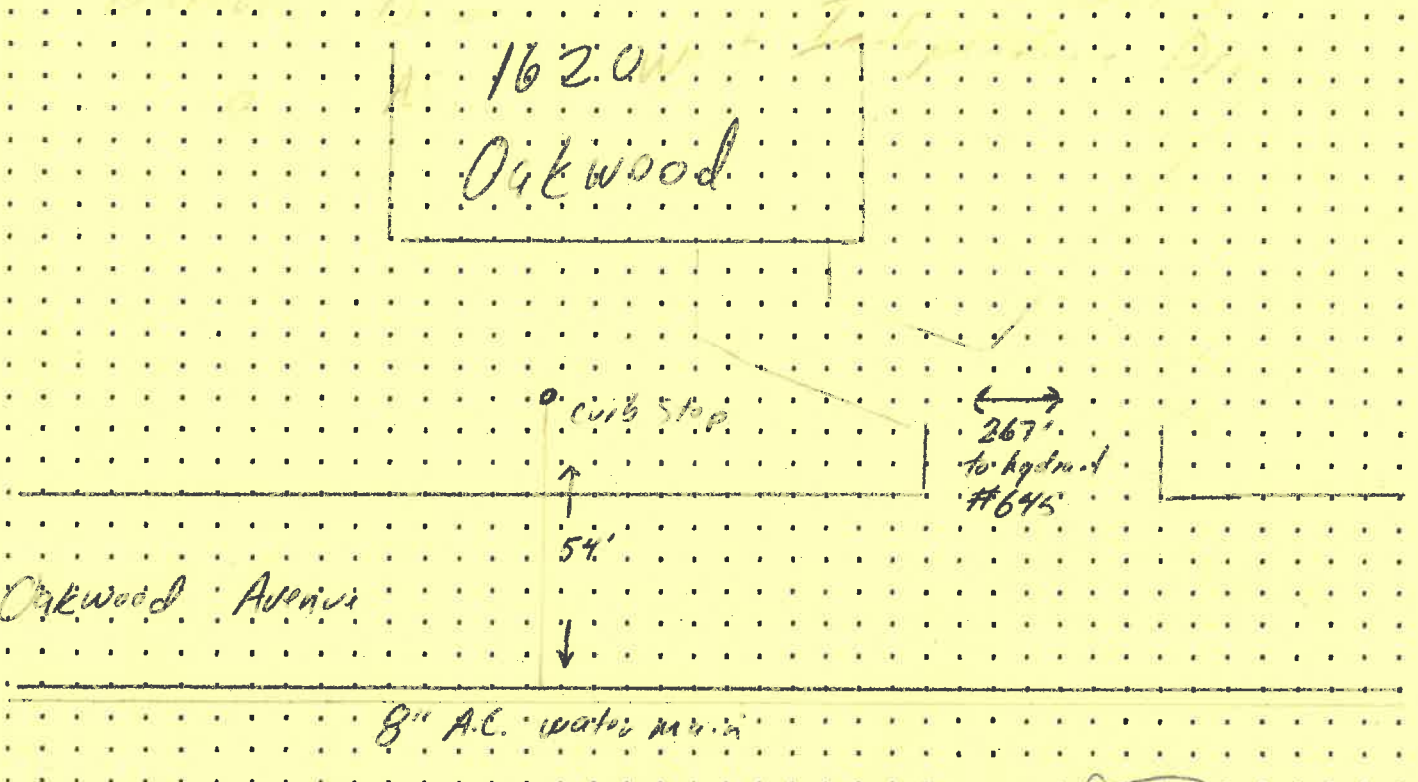 1620
Oakwood
curb stop
267'
to hydrant
#645
54'
Oakwood Avenue
8" A.C. water main